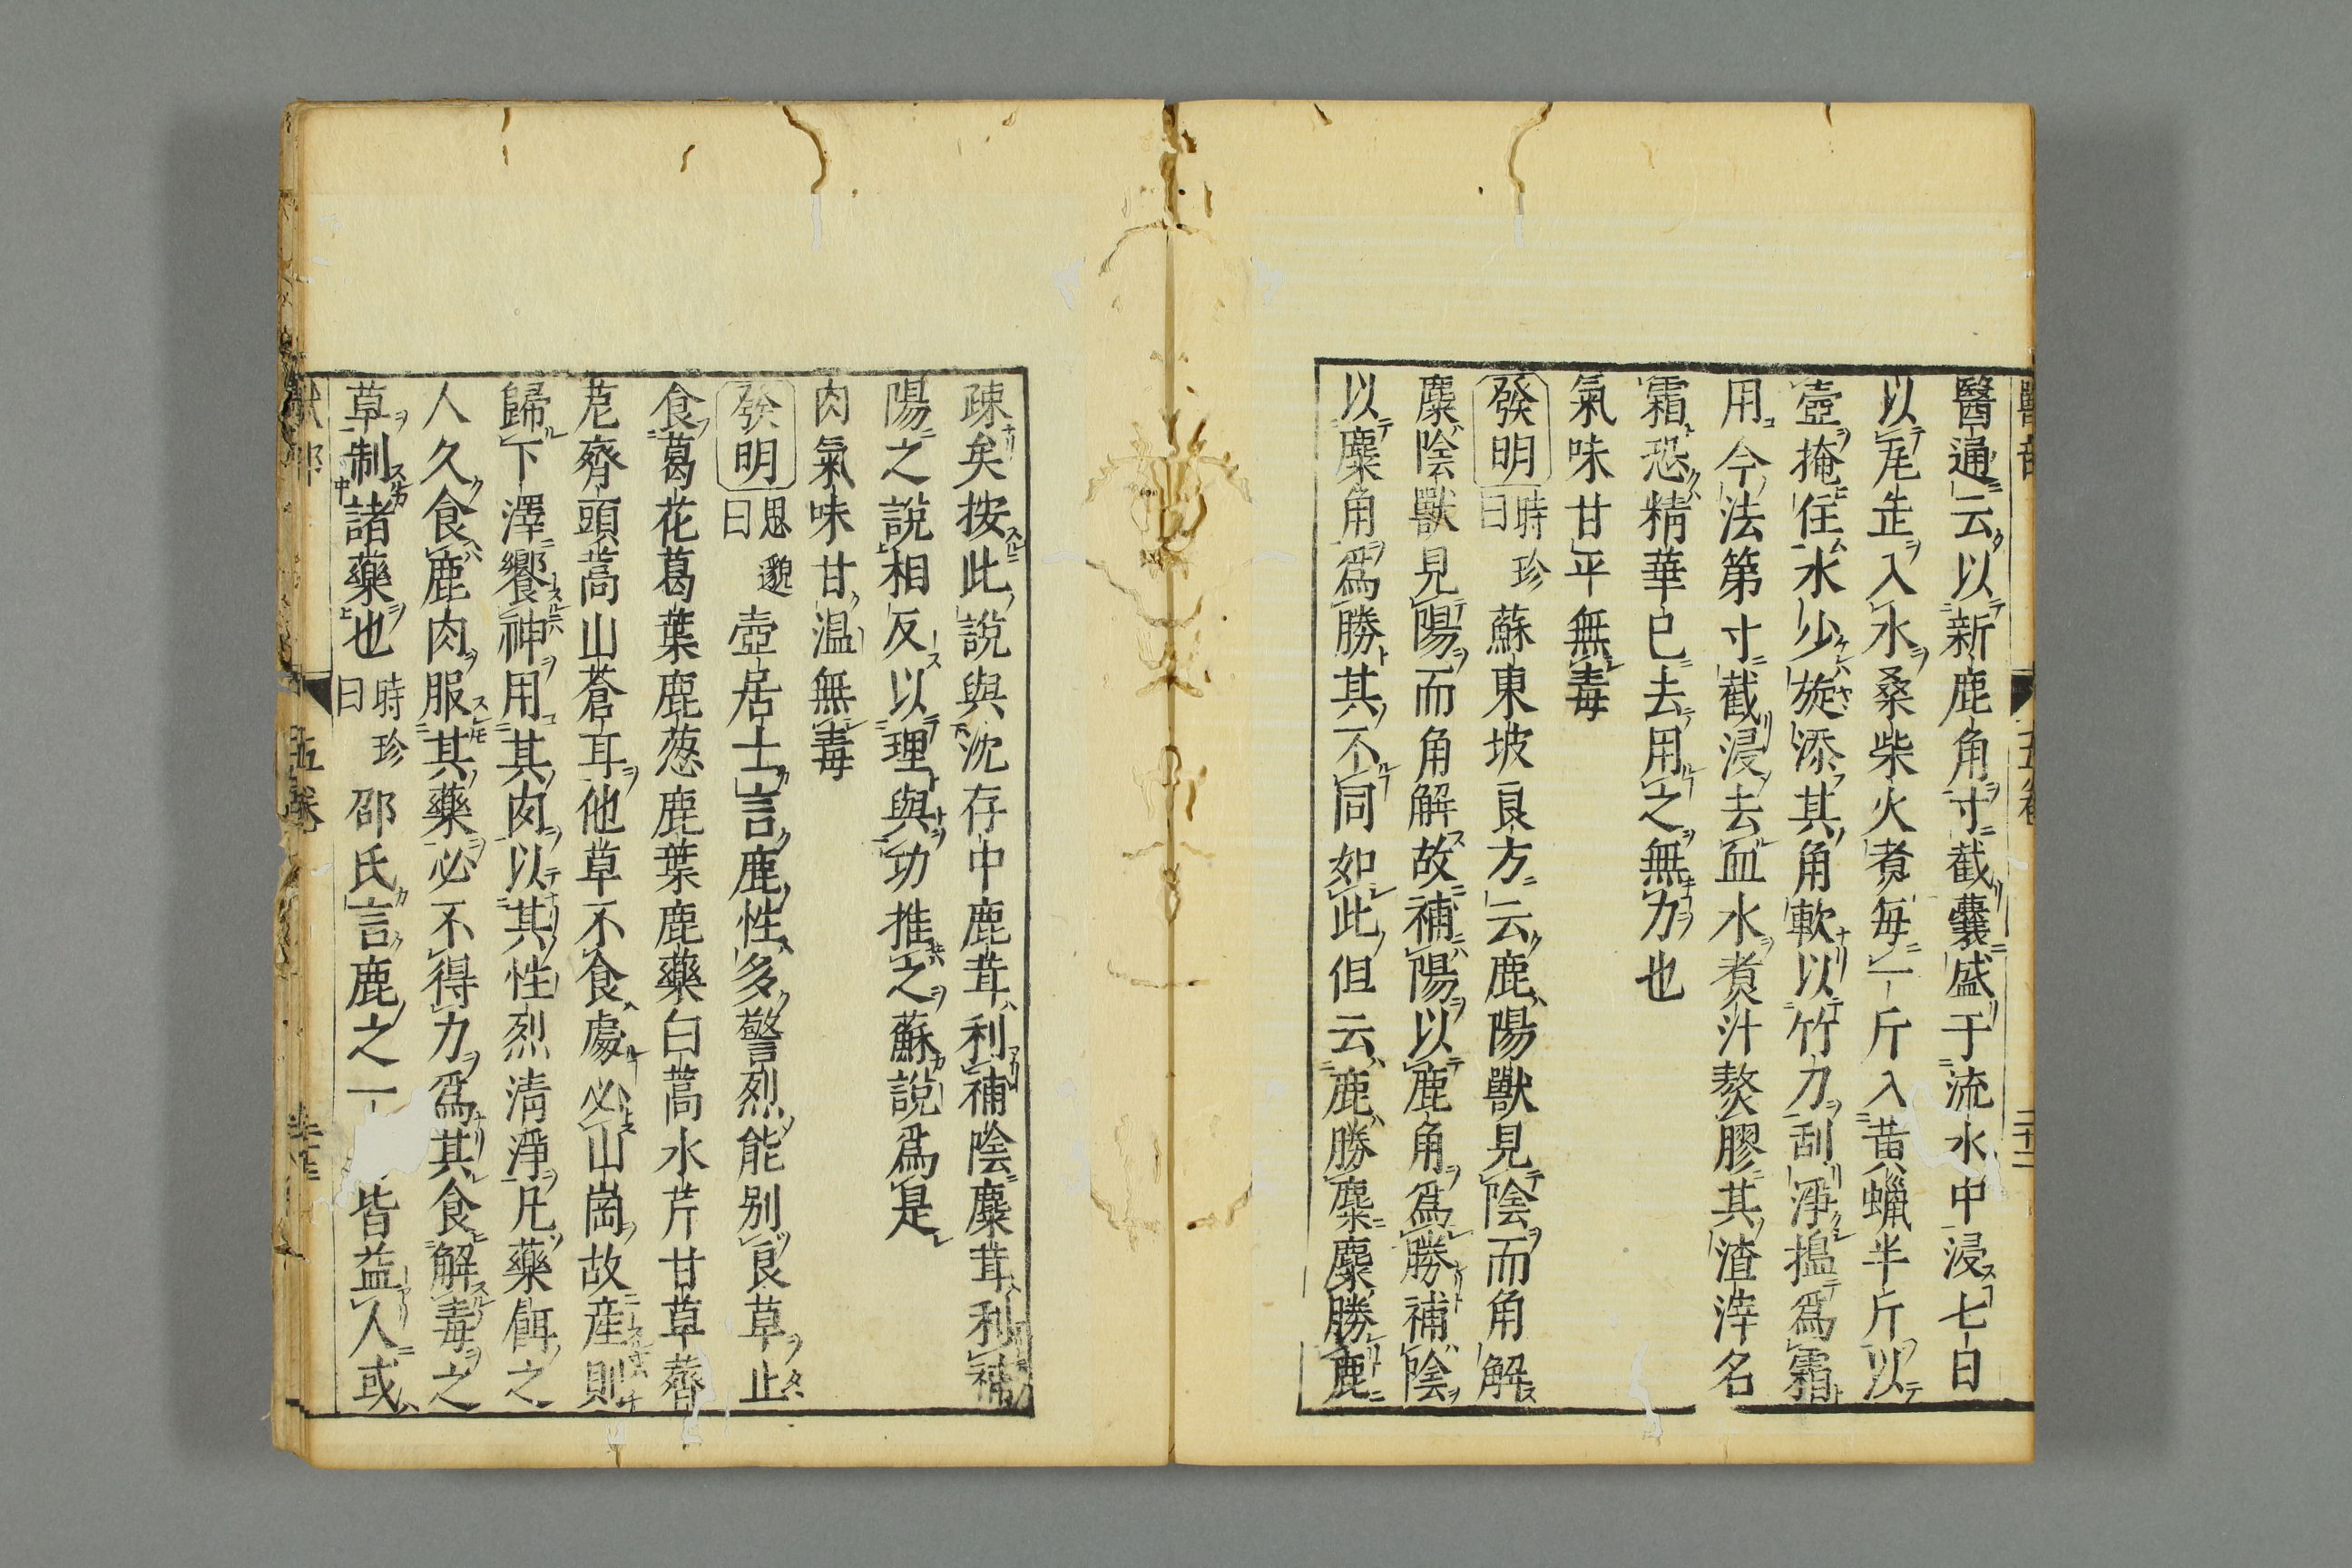 醫通云以新鹿角寸截囊盛于流水中浸七日
以瓦缶入水桑柴火煑每一斤入黄蝋半斤以
壺掩住水少旋添其角軟以竹刀刮淨搗爲霜
用今法第寸截浸去血水煑汁熬膠其渣滓名
霜恐精華已去用之無力也
氣味甘平無毒
發明時珍曰蘇東坡良方云鹿陽獸見陰而角解
麋陰獸見陽而角解故補陽以鹿角爲勝補陰
以麋角爲勝其不同如此但云鹿勝麋麋勝鹿
疎矣按此說與沈存中鹿茸利補陰麋茸利補
陽之說相反以理與功推之蘇說爲是
肉氣味甘温無毒
發明思邈曰壺居士言鹿性多警烈能别良草止
食葛花葛葉鹿葱鹿葉鹿藥白蒿水芹甘草薺
苨齊頭蒿山蒼耳他草不食處必山崗故産則
歸下澤饗神用其肉以其性烈淸淨凡藥餌之
人久食鹿肉服其藥必不得力爲其食解毒之
草制諸藥也時珍曰邵氏言鹿之一皆益人或
獸部 五卷